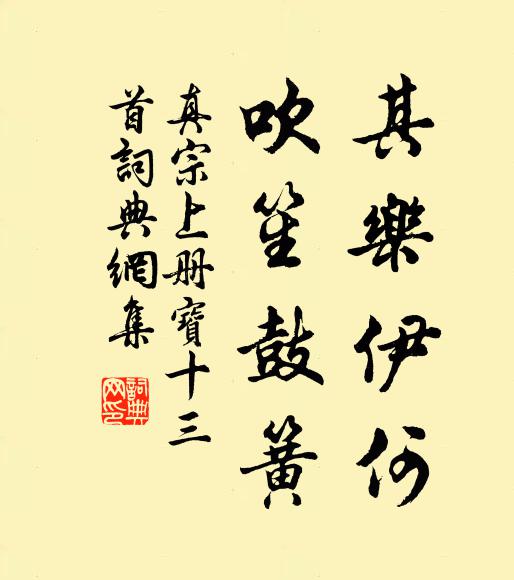 其樂伊何
吹笙鼓簧
真宗上册寶十三
首詞典網集
詞典網印